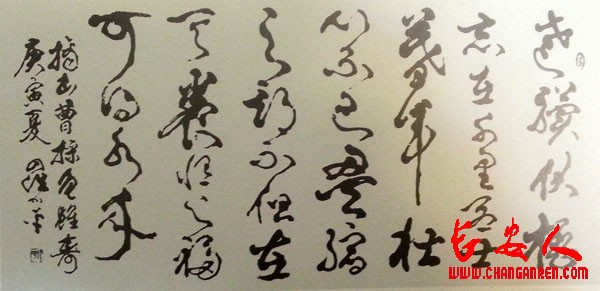 老驥伏櫪
志在千里烈士
暮年壮
心不已盈縮
之期不但在
天養怡之福
可得永年
摘书曹操龟雖寿
庚寅夏 羅小平
长安人
WWW.CHANGANREN.COM